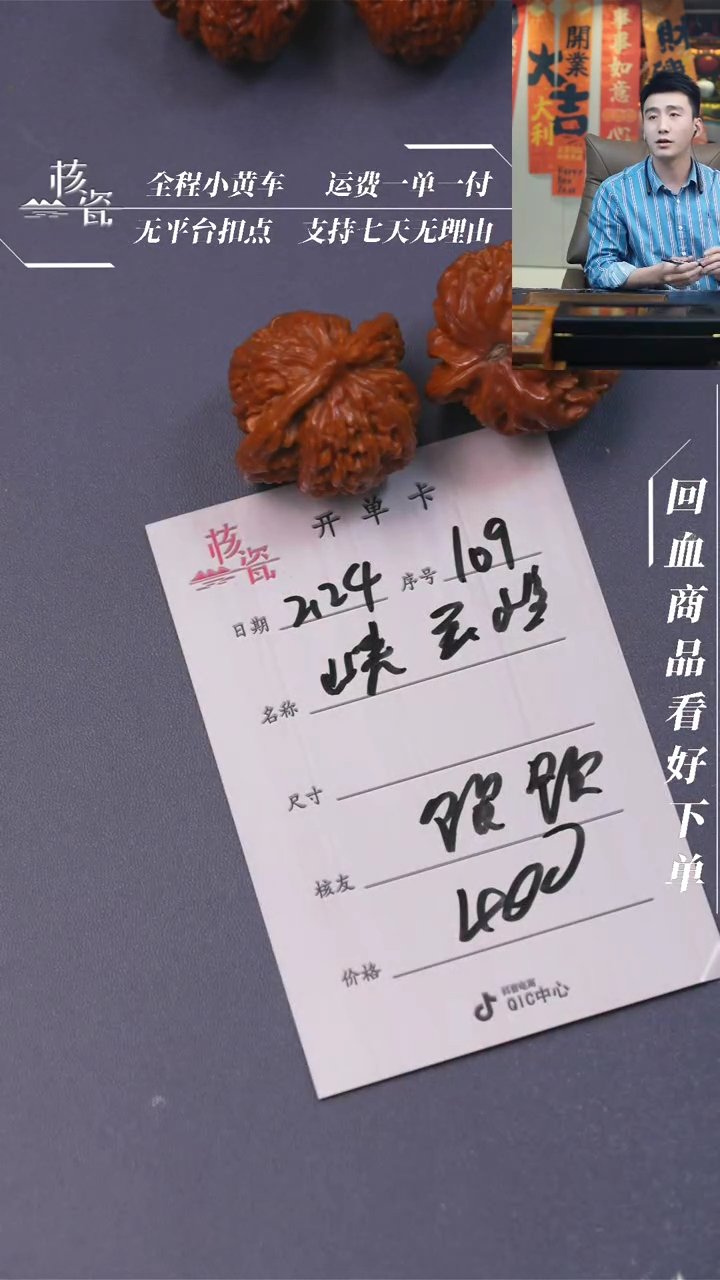 核瓷
全程小黄车 运费一单一付
无平台扣点 支持七天无理由
開業
大吉
大利
事事如意
财
心
回血商品看好下单
核瓷
开单卡
日期 2.24 序号 109
名称 峡云峰
尺寸
核友
价格 400
抖音电商
QIC中心